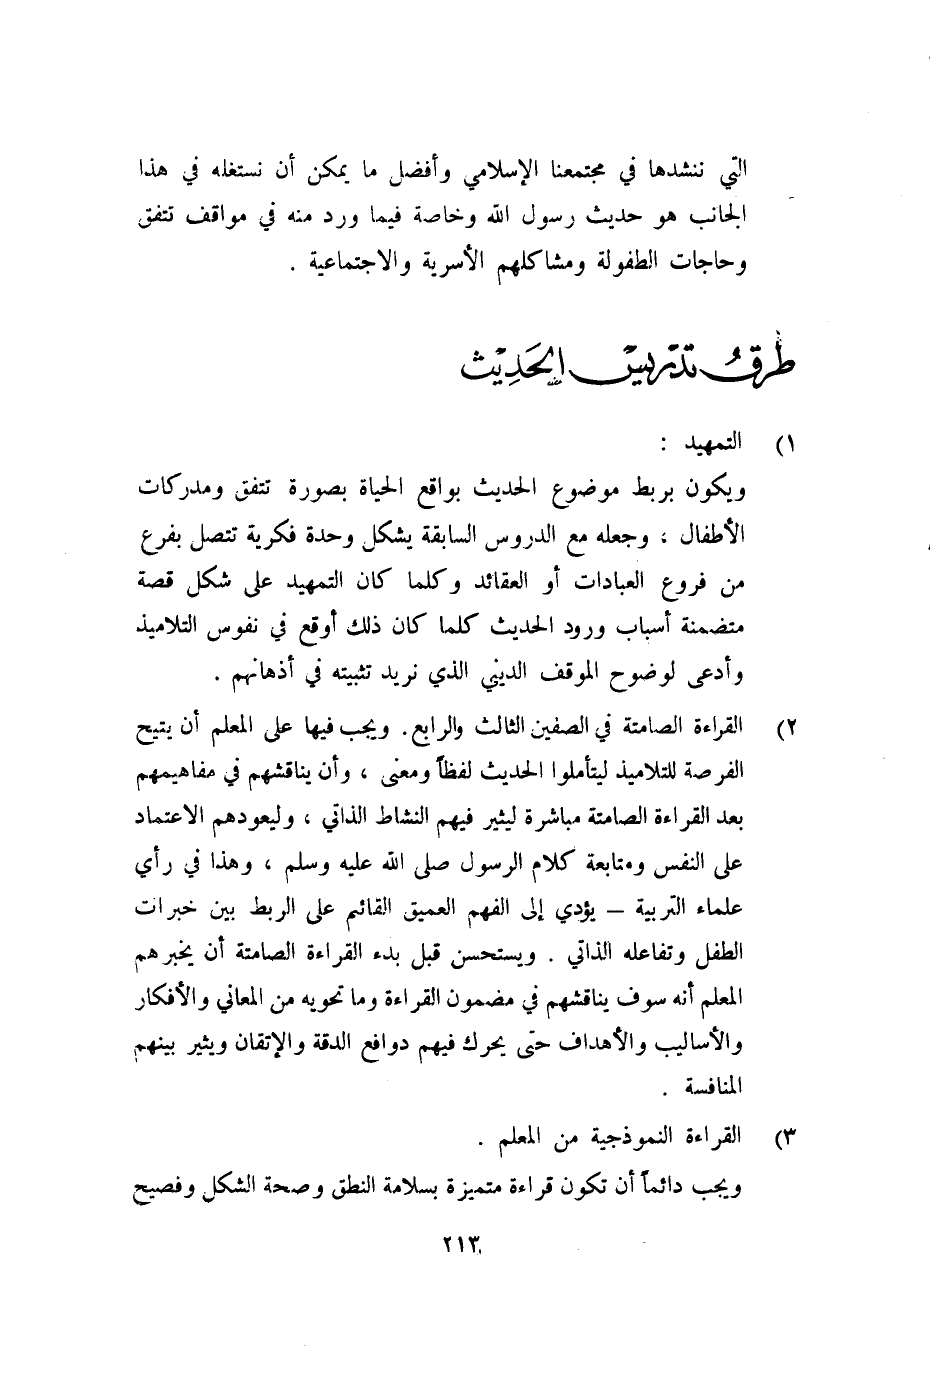 التي ننشدها في مجتمعنا الإسلامي وأفضل ما يمكن أن نستغله في هذا
الجانب هو حديث رسول الله وخاصة فيما ورد منه في مواقف تتفق
وحاجات الطفولة ومشاكلهم الأسرية والاجتماعية .
طرقُ تدريس الحَدِيث
١) التمهيد :
ويكون بربط موضوع الحديث بواقع الحياة بصورة تتفق ومدركات
الأطفال ، وجعله مع الدروس السابقة يشكل وحدة فكرية تتصل بفرع
من فروع العبادات أو العقائد وكلما كان التمهيد على شكل قصة
متضمنة أسباب ورود الحديث كلما كان ذلك أوقع في نفوس التلاميذ
وأدعى لوضوح الموقف الديني الذي نريد تثبيته في أذهانهم .
٢) القراءة الصامتة في الصفين الثالث والرابع. ويجب فيها على المعلم أن يتيح
الفرصة للتلاميذ ليتأملوا الحديث لفظاً ومعنى ، وأن يناقشهم في مفاهيمهم
بعد القراءة الصامتة مباشرة ليثير فيهم النشاط الذاتي ، وليعودهم الاعتماد
على النفس ومتابعة كلام الرسول صلى الله عليه وسلم ، وهذا في رأي
علماء التربية – يؤدي إلى الفهم العميق القائم على الربط بين خبرات
الطفل وتفاعله الذاتي . ويستحسن قبل بدء القراءة الصامتة أن يخبرهم
المعلم أنه سوف يناقشهم في مضمون القراءة وما تحويه من المعاني والأفكار
والأساليب والأهداف حتى يحرك فيهم دوافع الدقة والإتقان ويثير بينهم
المنافسة .
٣) القراءة النموذجية من المعلم .
ويجب دائماً أن تكون قراءة متميزة بسلامة النطق وصحة الشكل وفصيح
٢١٣